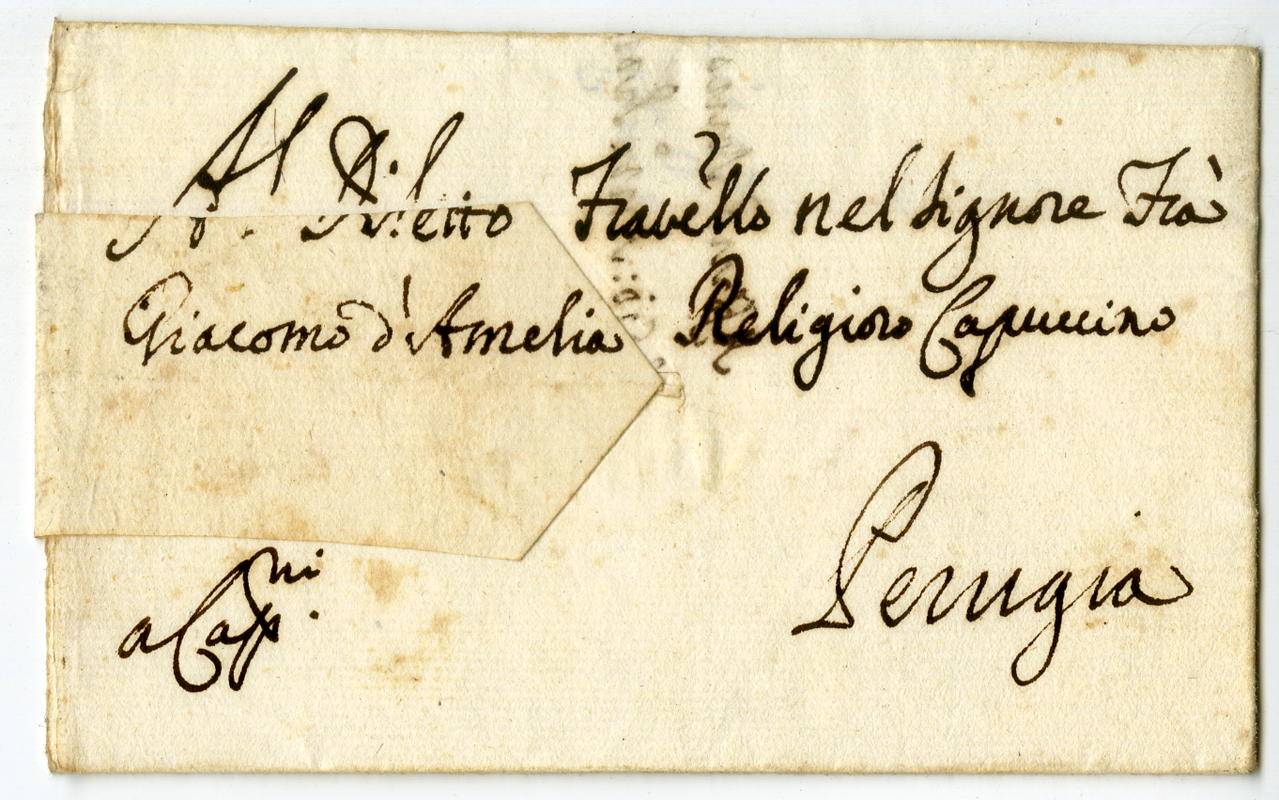 Al Diletto Fratello nel Signore Frà
Giacomo d'Amelia Religioso Capuccino
Perugia
a Capp.ni